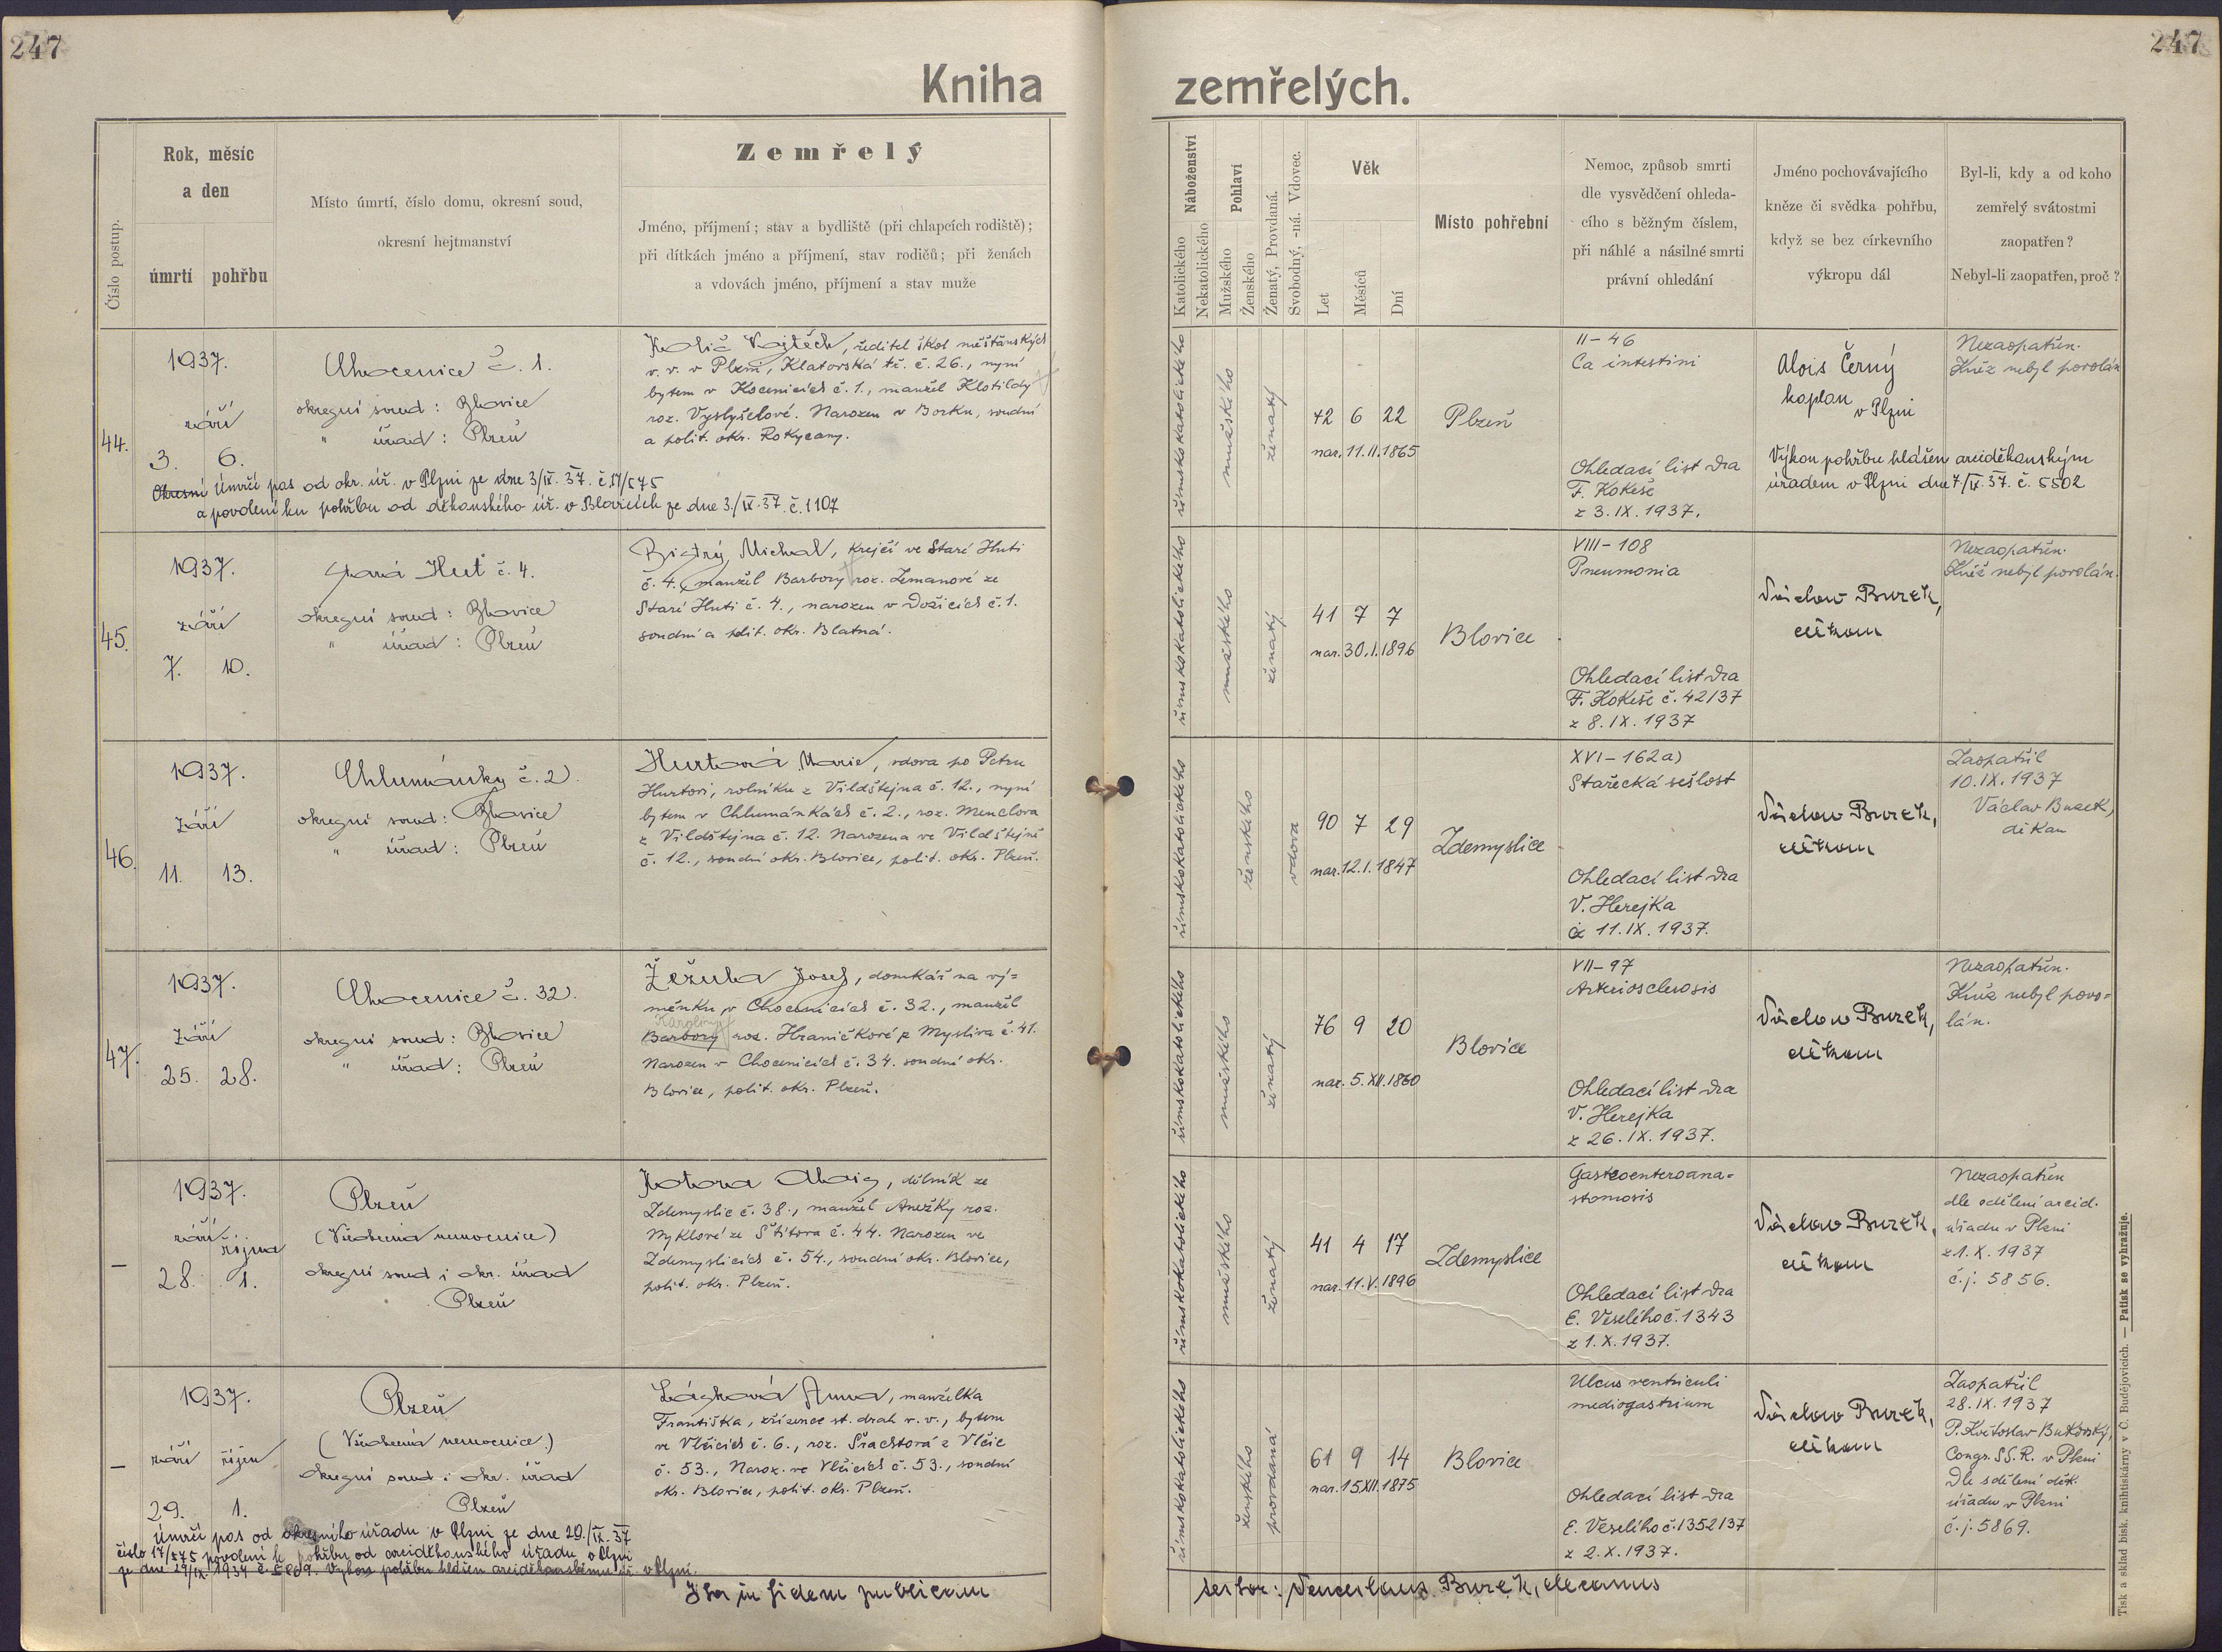 247
247
Kniha zemřelých.
Číslo postup.
Rok, měsíc
a den
úmrtí
pohřbu
Místo úmrtí, číslo domu, okresní soud,
okresní hejtmanství
Zemřelý
Jméno, příjmení; stav a bydliště (při chlapcích rodiště);
při dítkách jméno a příjmení, stav rodičů; při ženách
a vdovách jméno, příjmení a stav muže
Náboženství
Katolického
Nekatolického
Pohlaví
Mužského
Ženského
Ženatý, Provdaná.
Svobodný, -ná. Vdovec.
Věk
Let
Měsíců
Dní
Místo pohřební
Nemoc, způsob smrti
dle vysvědčení ohleda-
cího s běžným číslem,
při náhlé a násilné smrti
právní ohledání
Jméno pochovávajícího
kněze či svědka pohřbu,
když se bez církevního
výkropu dál
Byl-li, kdy a od koho
zemřelý svátostmi
zaopatřen?
Nebyl-li zaopatřen, proč?
44.
1937.
září
3. 6.
Chocenice č. 1.
okresní soud: Blovice
" úřad: Plzeň
Količ Vojtěch, ředitel škol měšťanských
v. v. v Plzni, Klatovská tř. č. 26., nyní
bytem v Kocenicích č. 1., manžel Klotildy
roz. Vyslyšelové. Narozen v Borku, soudní
a polit. okr. Rokycany.
Okresní Úmrčí pas od okr. úř. v Plzni ze dne 3/IX. 37. č. 17/575
a povolení ku pohřbu od děkanského úř. v Blovicích ze dne 3./IX. 37. č. 1107
římskokatolického
mužského
ženatý
72 6 22
nar. 11. II. 1865
Plzeň
II - 46
Ca intestini
Ohledací list Dra
F. Kokeše
z 3. IX. 1937.
Alois Černý
kaplan
v Plzni
Výkon pohřbu hlášen arciděkanským
úřadem v Plzni dne 7/IX. 37. č. 5502
Nezaopatřen.
Kněz nebyl povolán
45.
1937.
září
7. 10.
Stará Huť č. 4.
okresní soud: Blovice
" úřad: Plzeň
Bistrý Michal, krejčí ve Staré Huti
č. 4., manžel Barbory roz. Zemanové ze
Staré Huti č. 4., narozen v Dožicích č. 1.
soudní a polit. okr. Blatná.
římskokatolického
mužského
ženatý
41 7 7
nar. 30. I. 1896
Blovice
VIII - 108
Pneumonia
Ohledací list Dra
F. Kokeše č. 42/37
z 8. IX. 1937
Václav Burek,
děkan
Nezaopatřen.
Kněz nebyl povolán.
46.
1937.
září
11. 13.
Chlumánky č. 2.
okresní soud: Blovice
" úřad: Plzeň
Hurtová Marie, vdova po Petru
Hurtovi, rolníku z Vildštejna č. 12., nyní
bytem v Chlumánkách č. 2., roz. Menclova
z Vildštejna č. 12. Narozena ve Vildštejně
č. 12., soudní okr. Blovice, polit. okr. Plzeň.
římskokatolického
ženského
vdova
90 7 29
nar. 12. I. 1847
Zdemyslice
XVI - 162 a)
Stařecká sešlost
Ohledací list Dra
V. Herejka
z 11. IX. 1937.
Václav Burek,
děkan
Zaopatřil
10. IX. 1937
Václav Burek,
děkan
47.
1937.
září
25. 28.
Chocenice č. 32.
okresní soud: Blovice
" úřad: Plzeň
Žežula Josef, domkář na vý=
měnku v Chocenicích č. 32., manžel
Karoliny
Barbory roz. Hraničkové z Mysliva č. 41.
Narozen v Chocenicích č. 34. soudní okr.
Blovice, polit. okr. Plzeň.
římskokatolického
mužského
ženatý
76 9 20
nar. 5. XII. 1860
Blovice
VII - 97
Arteriosclerosis
Ohledací list Dra
V. Herejka
z 26. IX. 1937.
Václav Burek,
děkan
Nezaopatřen.
Kněz nebyl povo=
lán.
—
1937.
září října
28. 1.
Plzeň
(Všeobecná nemocnice)
okresní soud i okr. úřad
Plzeň
Kotora Alois, dělník ze
Zdemyslic č. 38., manžel Anežky roz.
Myklové ze Štítova č. 44. Narozen ve
Zdemyslicích č. 54., soudní okr. Blovice,
polit. okr. Plzeň.
římskokatolického
mužského
ženatý
41 4 17
nar. 11. V. 1896
Zdemyslice
Gastroenteroana=
stomosis
Ohledací list Dra
E. Veselého č. 1343
z 1. X. 1937.
Václav Burek,
děkan
Nezaopatřen
dle sdělení arcid.
úřadu v Plzni
z 1. X. 1937
č. j. 5856.
—
1937.
září říjen
29. 1.
Plzeň
(Všeobecná nemocnice)
okresní soud i okr. úřad
Plzeň
Anna, manželka
Františka, zřízence st. drah v. v., bytem
ve Vlčicích č. 6., roz. Šrachtová z Vlčic
č. 53., Naroz. ve Vlčicích č. 53., soudní
okr. Blovice, polit. okr. Plzeň.
Úmrčí pas od okresního úřadu v Plzni ze dne 29./IX. 37
číslo 17/575 povolení k pohřbu od arciděkanského úřadu v Plzni
ze dne 29/IX. 1937 č. 5869. Výkon pohřbu hlášen arciděkanskému úř. v Plzni.
římskokatolického
ženského
provdaná
61 9 14
nar. 15. XII. 1875
Blovice
Ulcus ventriculi
mediogastrium
Ohledací list Dra
E. Veselého č. 1352/37
z 2. X. 1937.
Václav Burek,
děkan
Zaopatřil
28. IX. 1937
P. Květoslav Butkovský,
Congr. SS. R. v Plzni
Dle sdělení děk.
úřadu v Plzni
č. j. 5869.
Ita in fidem publicam
testor: Venceslaus Burek, decanus
Tisk a sklad bisk. knihtiskárny v Č. Budějovicích. — Patisk se vyhražuje.